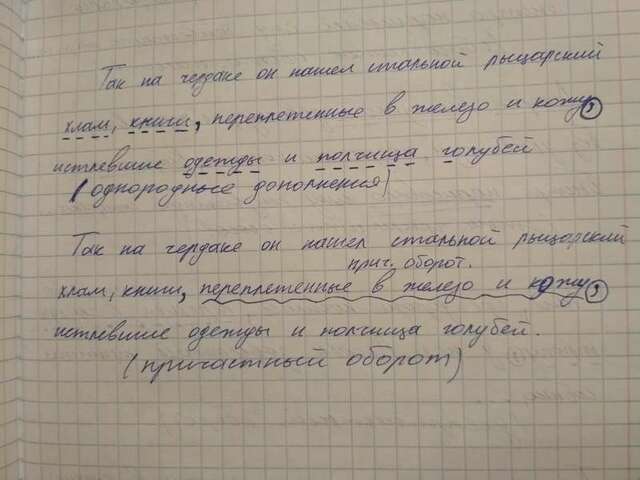 Так на чердаке он нашел стальной рыцарский
хлам, книги, переплетенные в железо и кожу,
истлевшие одежды и полчища голубей
(однородные дополнения)
Так на чердаке он нашел стальной рыцарский
прич. оборот.
хлам, книги, переплетенные в железо и кожу,
истлевшие одежды и полчища голубей.
(причастный оборот)